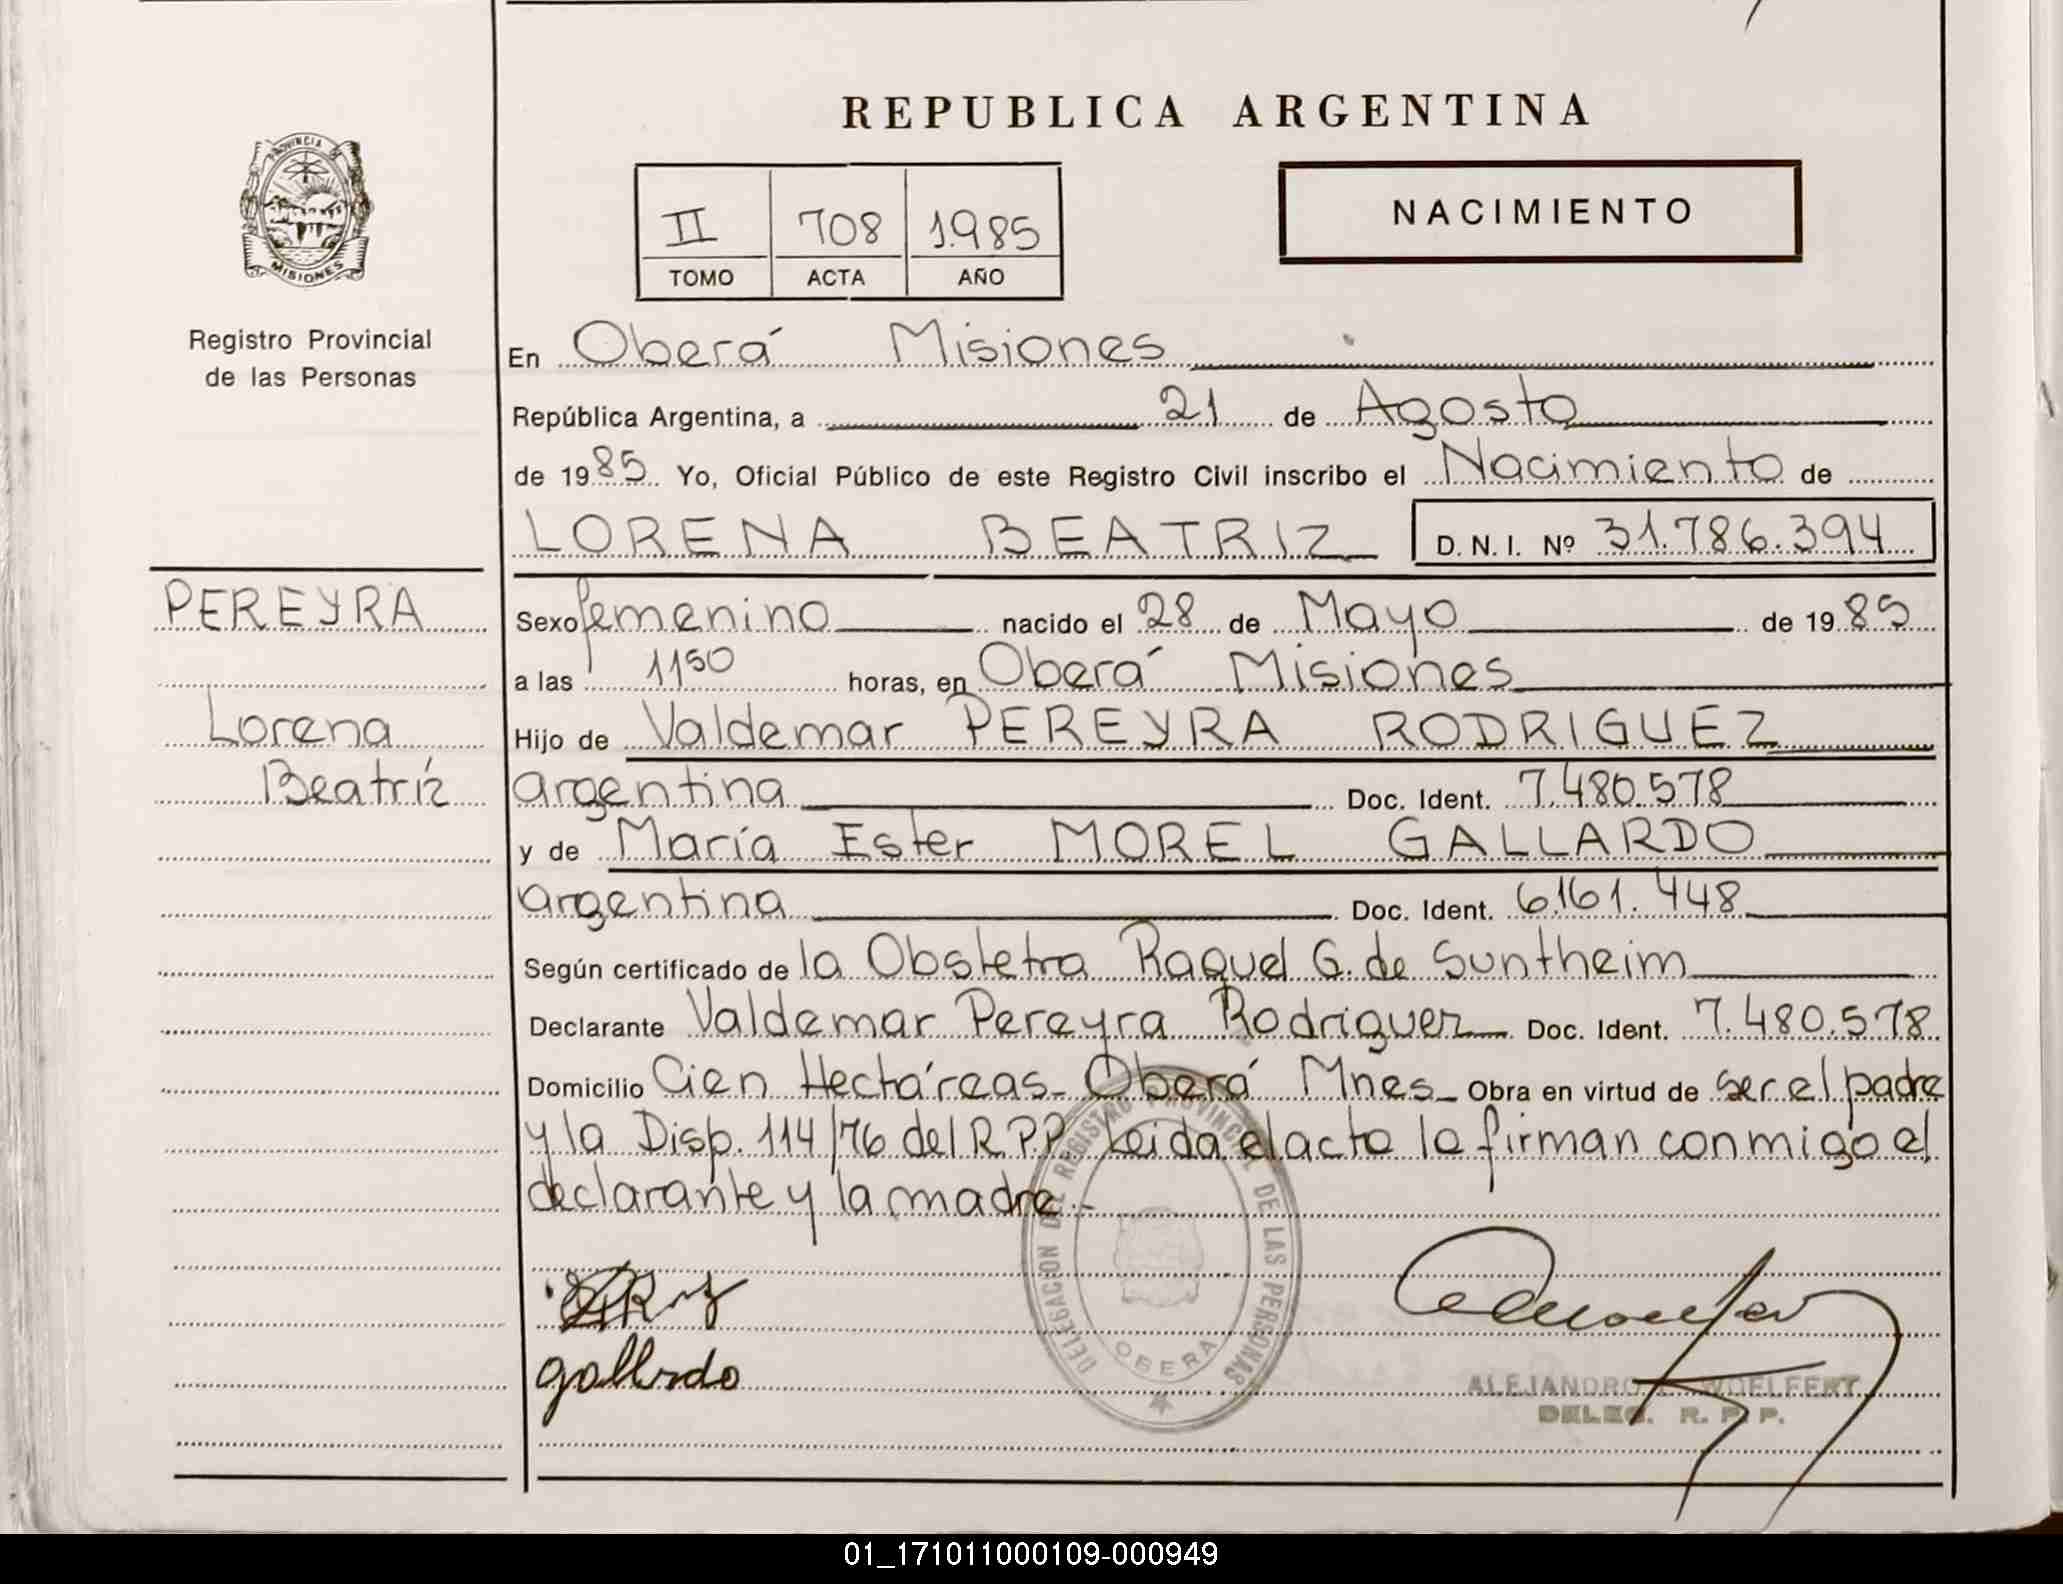 REPUBLICA ARGENTINA
PROVINCIA DE
MISIONES
II 708 1.985
TOMO ACTA AÑO
NACIMIENTO
Registro Provincial
de las Personas
En Oberá Misiones
República Argentina, a 21 de Agosto
de 1985 Yo, Oficial Público de este Registro Civil inscribo el Nacimiento de
LORENA BEATRIZ D. N. I. Nº 31.786.394
PEREYRA
Lorena
Beatríz
Sexo femenino nacido el 28 de Mayo de 1985
a las 1150 horas, en Oberá Misiones
Hijo de Valdemar PEREYRA RODRIGUEZ
argentina Doc. Ident. 7.480.578
y de María Ester MOREL GALLARDO
argentina Doc. Ident. 6.161.448
Según certificado de la Obstetra Raquel G. de Suntheim
Declarante Valdemar Pereyra Rodriguez Doc. Ident. 7.480.578
Domicilio Cien Hectáreas- Oberá Mnes- Obra en virtud de ser el padre
y la Disp. 114/76 del R.P.P. Leida el acta la firman conmigo el
declarante y la madre.-
DELEGACION DE REGISTRO PROVINCIAL DE LAS PERSONAS
OBERA
gallrdo
ALEJANDRO WOELFERT
DELEG. R. P. P.
01_171011000109-000949